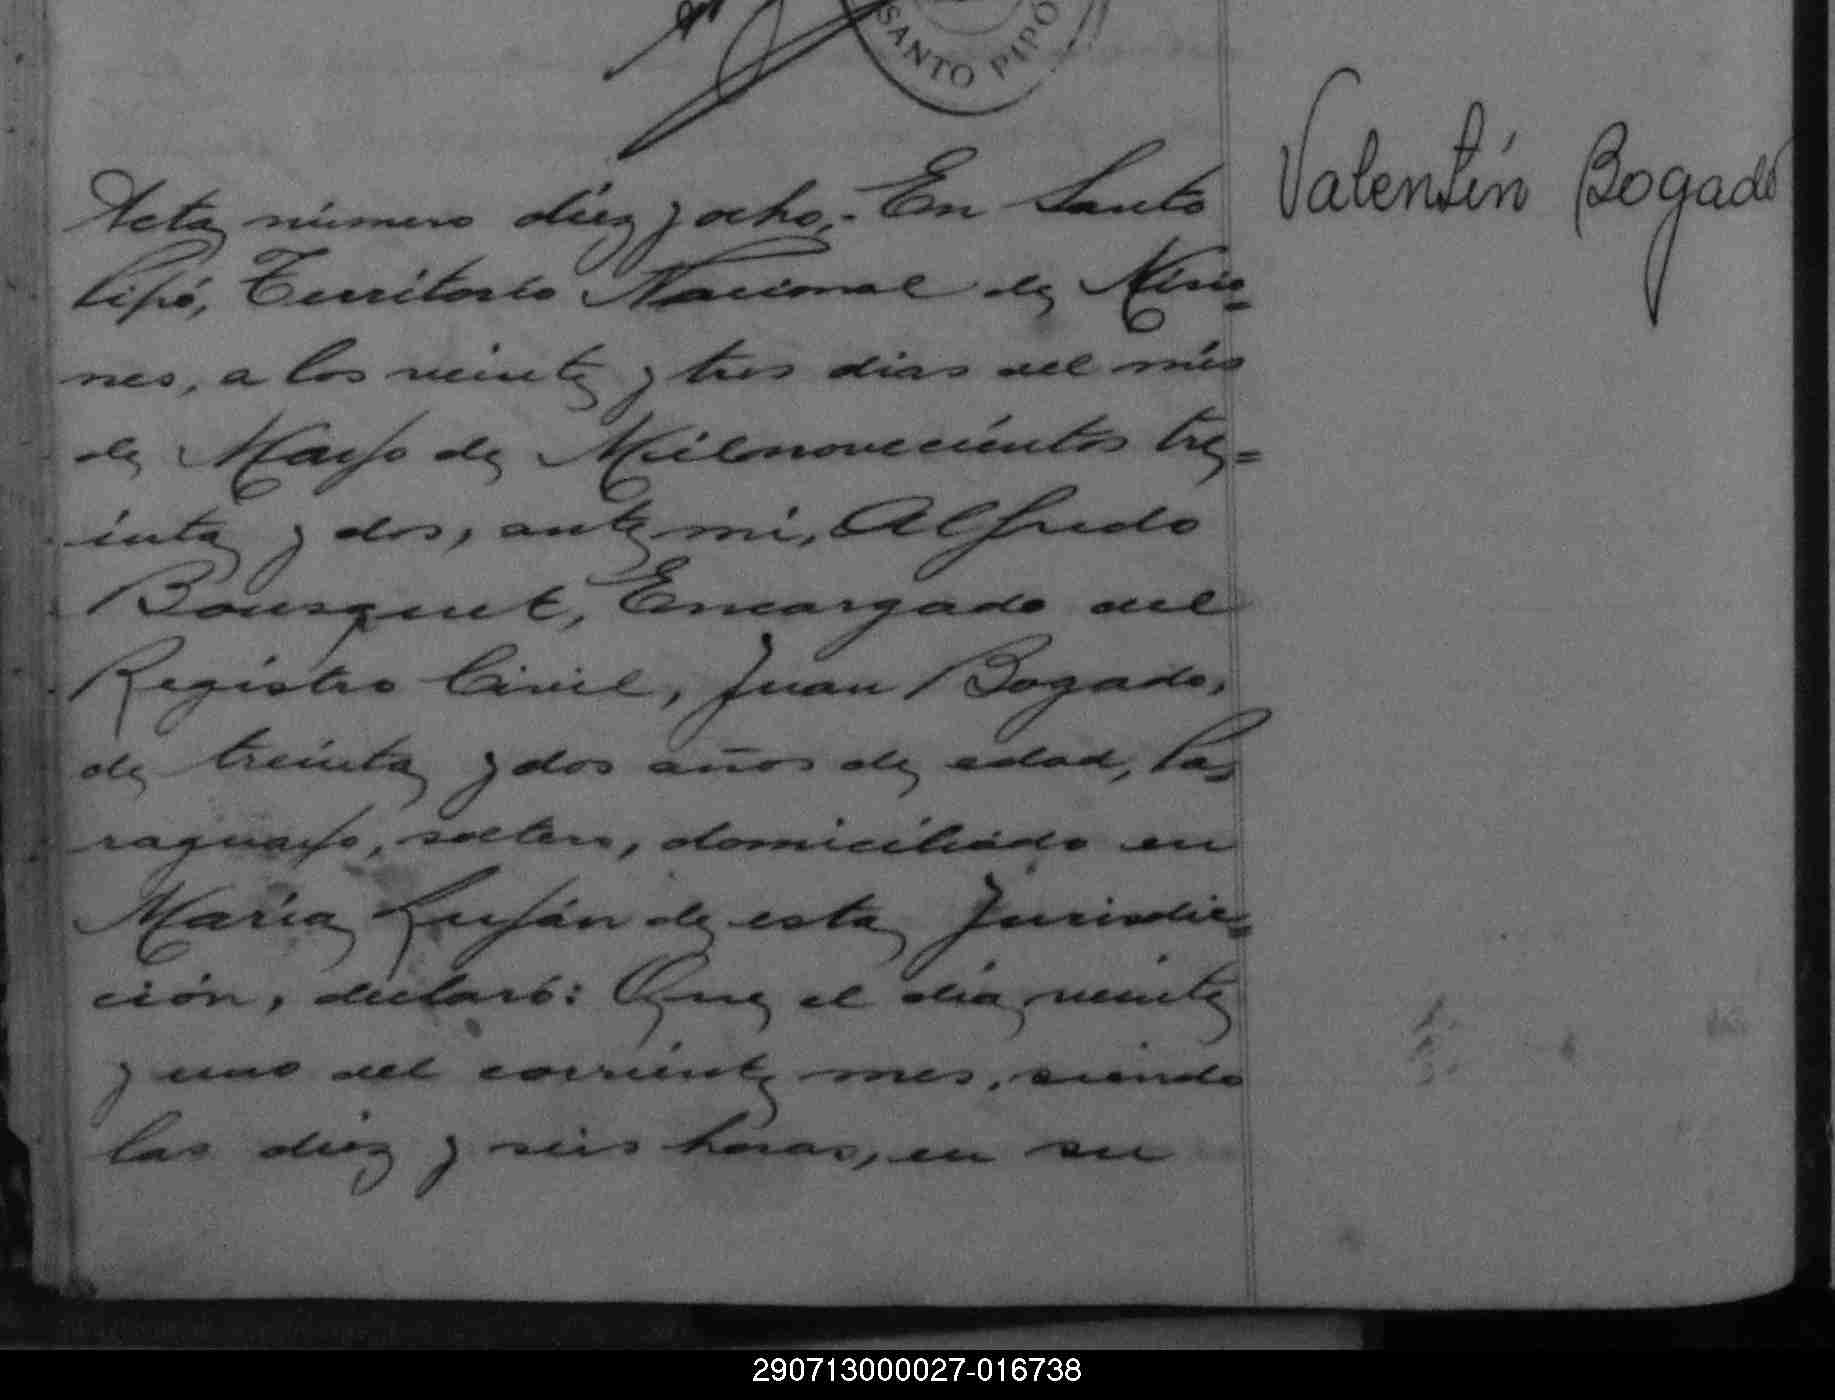 SANTO PIPÓ
Valentín Bogado
Acta número diez y ocho.- En Santo
Pipó, Territorio Nacional de Misio=
nes, a los veinte y tres dias del mes
de Mayo de Milnovecientos tre=
inta y dos, ante mi, Alfredo
Bousquet, Encargado del
Registro Civil, Juan Bogado,
de treinta y dos años de edad, Pa=
raguayo, soltero, domiciliado en
María Luján de esta Jurisdic=
ción, declaró: Que el día veinte
y uno del corriente mes, siendo
las diez y seis horas, en su
290713000027-016738